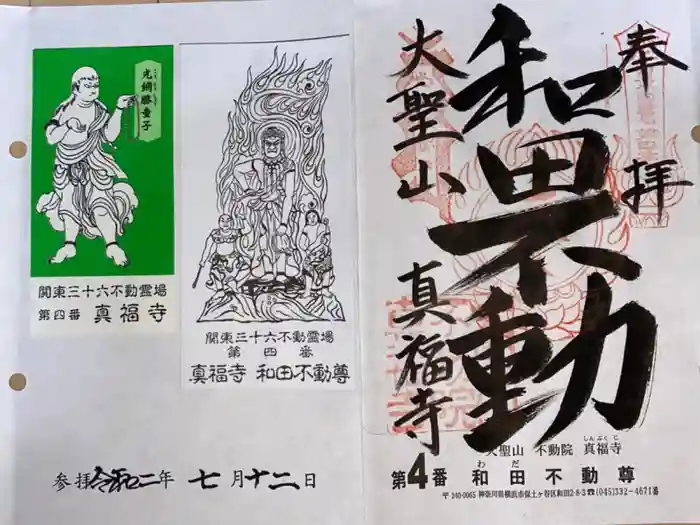 光網勝童子
関東三十六不動霊場
第四番 真福寺
関東三十六不動霊場
第四番
真福寺 和田不動尊
参拝令和二年 七月十二日
奉拝
和田不動
大聖山 真福寺
大聖山 不動院 真福寺
しんぷくじ
わだ
第4番 和田不動尊
〒240-0065 神奈川県横浜市保土ヶ谷区和田2-8-3 ☎(045)332-4671番